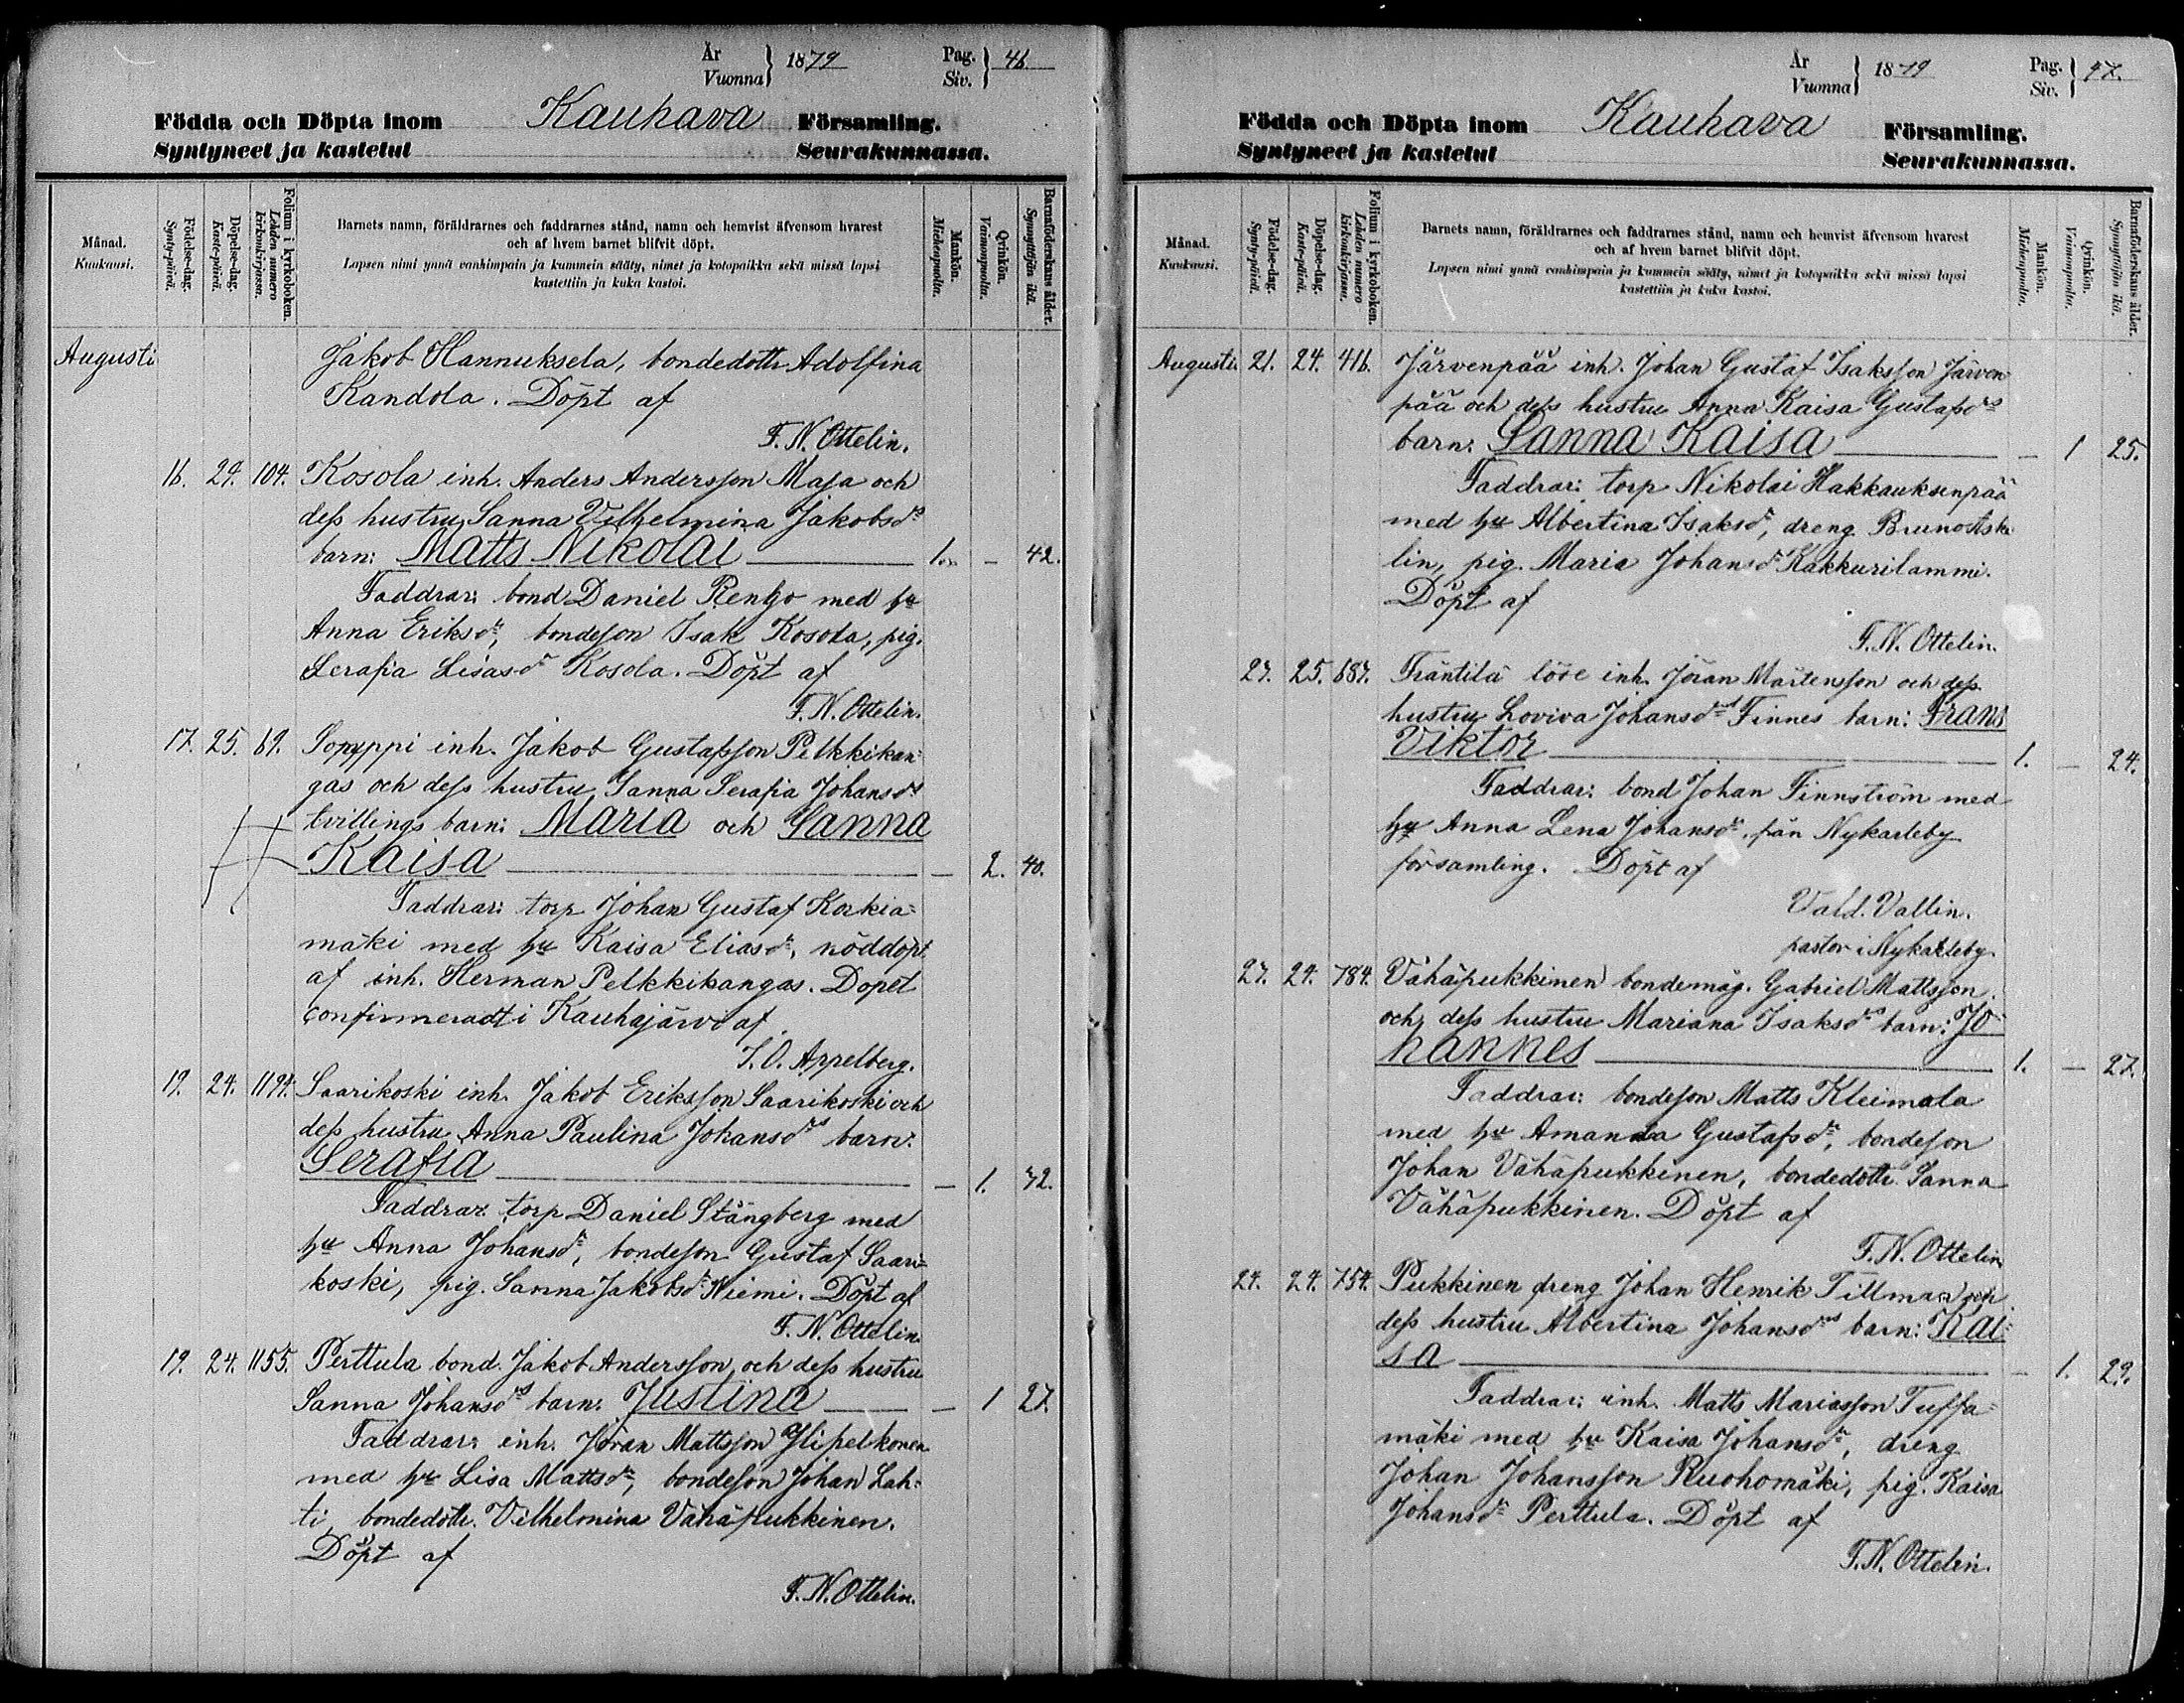 År
Vuonna } 1879
Pag.
Siv. } 46.
Födda och Döpta inom Kauhava Församling.
Syntyneet ja kastetut Seurakunnassa.
Månad.
Kuukausi.
Födelse-dag.
Synty-päivä.
Döpelse-dag.
Kaste-päivä.
Folium i kyrkoboken.
Lehden numero kirkonkirjassa.
Barnets namn, föräldrarnes och faddrarnes stånd, namn och hemvist äfvensom hvarest
och af hvem barnet blifvit döpt.
Lapsen nimi ynnä vanhimpain ja kummein sääty, nimet ja kotopaikka sekä missä lapsi
kastettiin ja kuka kastoi.
Mankön.
Miehenpuolta.
Qvinkön.
Vaimonpuolta.
Barnaföderskans ålder.
Synnyttäjän ikä.
Augusti Jakob Hannuksela, bondedottr Adolfina
Kandola. Döpt af
F. N. Ottelin.
16. 24. 104. Kosola inh. Anders Andersson Masa och
dess hustru Sanna Vilhelmina Jakobsdrs
barn: Matts Nikolai 1. – 42.
Faddrar: bond Daniel Rentjo med hu
Anna Eriksdr, bondeson Isak Kosola, pig.
Serafia Lisasdr Kosola. Döpt af
F. N. Ottelin.
17. 25. 69. Sopyppi inh. Jakob Gustafsson Pelkkikan=
gas och dess hustru Sanna Serafia Johansdrs
tvillings barn: Maria och Sanna
Kaisa – 2. 40.
Faddrar: torp Johan Gustaf Korkia=
mäki med hu Kaisa Eliasdr, nöddöpt
af inh. Herman Pelkkikangas. Dopet
confirmeradt i Kauhajärvi af
I. O. Appelberg.
19. 24. 1194. Saarikoski inh. Jakob Eriksson Saarikoski och
dess hustru Anna Paulina Johansdrs barn:
Serafia – 1. 32.
Faddrar: torp Daniel Stångberg med
hu Anna Johansdr, bondeson Gustaf Saari=
koski, pig. Sanna Jakobsdr Niemi. Döpt af
F. N. Ottelin.
19. 24. 1155. Perttula bond. Jakob Andersson och dess hustru
Sanna Johansdrs barn: Justina – 1 27.
Faddrar: inh. Jöran Mattsson Ylipelkonen
med hu Lisa Mattsdr, bondeson Johan Lah=
ti, bondedottr. Vilhelmina Vähäpukkinen.
Döpt af
F. N. Ottelin.
År
Vuonna } 1879
Pag.
Siv. } 47.
Födda och Döpta inom Kauhava Församling.
Syntyneet ja kastetut Seurakunnassa.
Månad.
Kuukausi.
Födelse-dag.
Synty-päivä.
Döpelse-dag.
Kaste-päivä.
Folium i kyrkoboken.
Lehden numero kirkonkirjassa.
Barnets namn, föräldrarnes och faddrarnes stånd, namn och hemvist äfvensom hvarest
och af hvem barnet blifvit döpt.
Lapsen nimi ynnä vanhimpain ja kummein sääty, nimet ja kotopaikka sekä missä lapsi
kastettiin ja kuka kastoi.
Mankön.
Miehenpuolta.
Qvinkön.
Vaimonpuolta.
Barnaföderskans ålder.
Synnyttäjän ikä.
Augusti. 21. 24. 416. Järvenpää inh. Johan Gustaf Isaksson Järven
pää och dess hustru Anna Kaisa Gustafsdrs
barn: Sanna Kaisa – 1 25.
Faddrar: torp Nikolai Hakkauksenpää
med hu Albertina Isaksdr, dreng Bruno Aske
lin, pig. Maria Johansdr Kakkurilammi.
Döpt af
F. N. Ottelin.
27. 25. 687. Fräntilä inh. Jöran Mårtensson och dess
hustru Loviva Johansdrs Finnes barn: Frans
Viktor 1. – 24.
Faddrar: bond Johan Finnström med
hu Anna Lena Johansdr, från Nykarleby
församling. Döpt af
Vald. Vallin.
pastor i Nykarleby.
27. 24. 784. Vähäpukkinen bondemåg. Gabriel Mattsson
och dess hustru Mariana Isaksdrs barn: Jo
hannes 1. – 27.
Faddrar: bondeson Matts Kleimola
med hu Amanda Gustafsdr, bondeson
Johan Vähäpukkinen, bondedottr. Sanna
Vähäpukkinen. Döpt af
F. N. Ottelin
24. 24. 754. Pukkinen dreng Johan Henrik Tillman och
dess hustru Albertina Johansdrs barn: Kai=
sa – 1. 29.
Faddrar: inh. Matts Mariasson Tuffa=
mäki med hu Kaisa Johansdr, dreng
Johan Johansson Ruohomäki, pig. Kaisa
Johansdr Perttula. Döpt af
F. N. Ottelin.